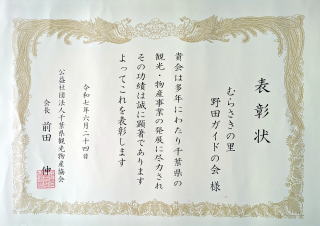 表彰状
むらさきの里
野田ガイドの会 様
貴会は多年にわたり千葉県の
観光・物産事業の発展に尽力され
その功績は誠に顕著であります
よってこれを表彰します
令和七年六月二十四日
公益社団法人千葉県観光物産協会
会長 前田 伸